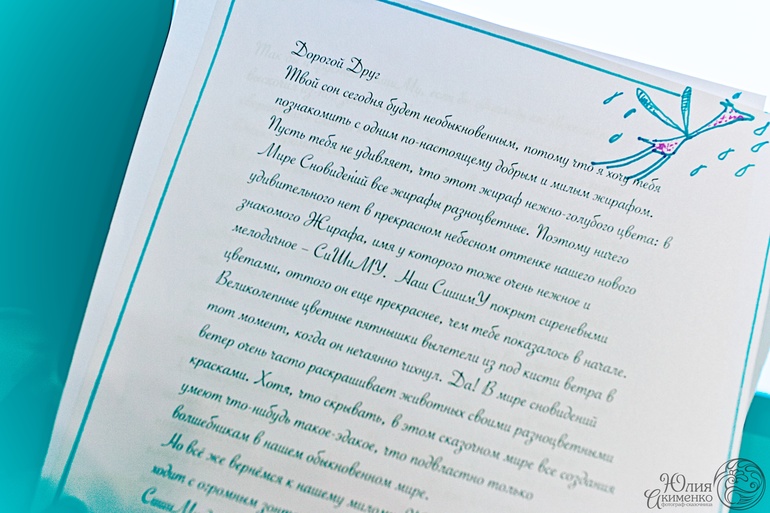 Дорогой Друг
Твой сон сегодня будет необыкновенным, потому что я хочу тебя
познакомить с одним по-настоящему добрым и милым жирафом.
Пусть тебя не удивляет, что этот жираф нежно-голубого цвета: в
Мире Сновидений все жирафы разноцветные. Поэтому ничего
удивительного нет в прекрасном небесном оттенке нашего нового
знакомого Жирафа, имя у которого тоже очень нежное и
мелодичное – СиШиМУ. Наш СишимУ покрыт сиреневыми
цветами, оттого он еще прекраснее, чем тебе показалось в начале.
Великолепные цветные пятнышки вылетели из под кисти ветра в
тот момент, когда он нечаянно чихнул. Да! В мире сновидений
ветер очень часто раскрашивает животных своими разноцветными
красками. Хотя, что скрывать, в этом сказочном мире все создания
умеют что-нибудь такое-эдакое, что подвластно только
волшебникам в нашем обыкновенном мире.
Но всё же вернёмся к нашему
ходит с огромным
Юлия
Акименко
фотограф-сказочница